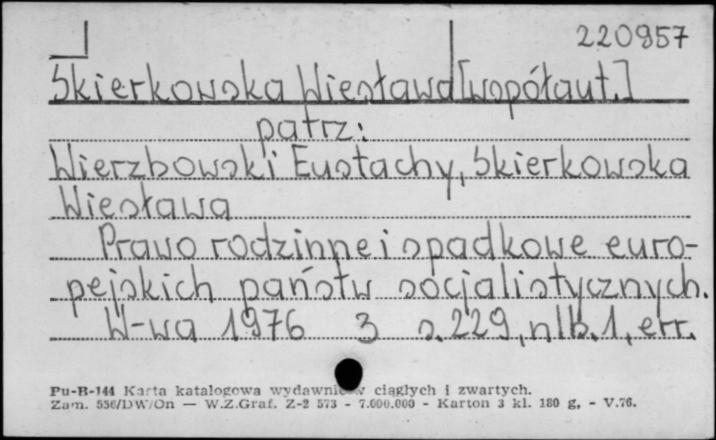 220957
Skierkowska Wiesława [współaut.]
patrz:
Wierzbowski Eustachy, Skierkowska
Wiesława
Prawo rodzinne i spadkowe euro-
pejskich państw socjalistycznych.
W-wa 1976 3 s. 229, nlb. 1, err.
Pu-B-144 Karta katalogowa wydawnictw ciągłych i zwartych.
Zam. 556/DW/On — W.Z.Graf. Z-2 573 - 7.000.000 - Karton 3 kl. 180 g, - V.76.